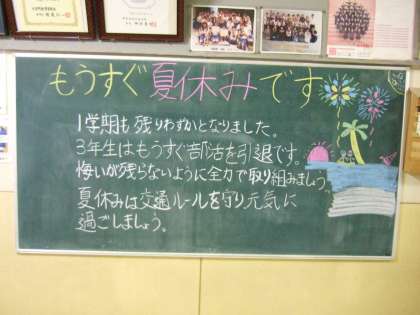 もうすぐ夏休みです
1学期も残りわずかとなりました。
3年生はもうすぐ部活を引退です。
悔いが残らないように全力で取り組みましょう
夏休みは交通ルールを守り元気に
過ごしましょう。